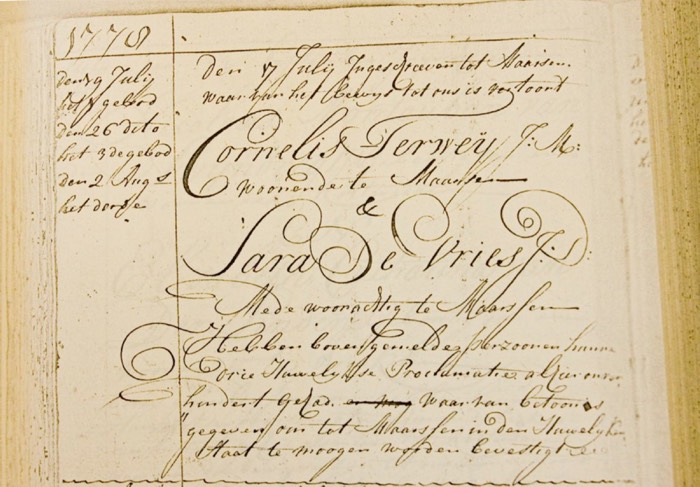 1778
Den 19 July
het 1 gebod
Den 26 dito
het 2de gebod
Den 2 Augs
het derde
Den 17 July Ingeschreeven tot Maarsen
waar van het bewijs tot ons is vertoont
Cornelis Terweÿ J: M:
woonende te Maarsen
&
Sara De Vries J: D:
Mede woonachtig te Maarssen
Hebben bovengemelde perzoonen hunne
Drie Huwelijkse Proclamatie alhier onver
hindert gehad. waar van betoon is
gegeven om tot Maarssen in den Huwelyken
Staat te moogen worden bevestigt